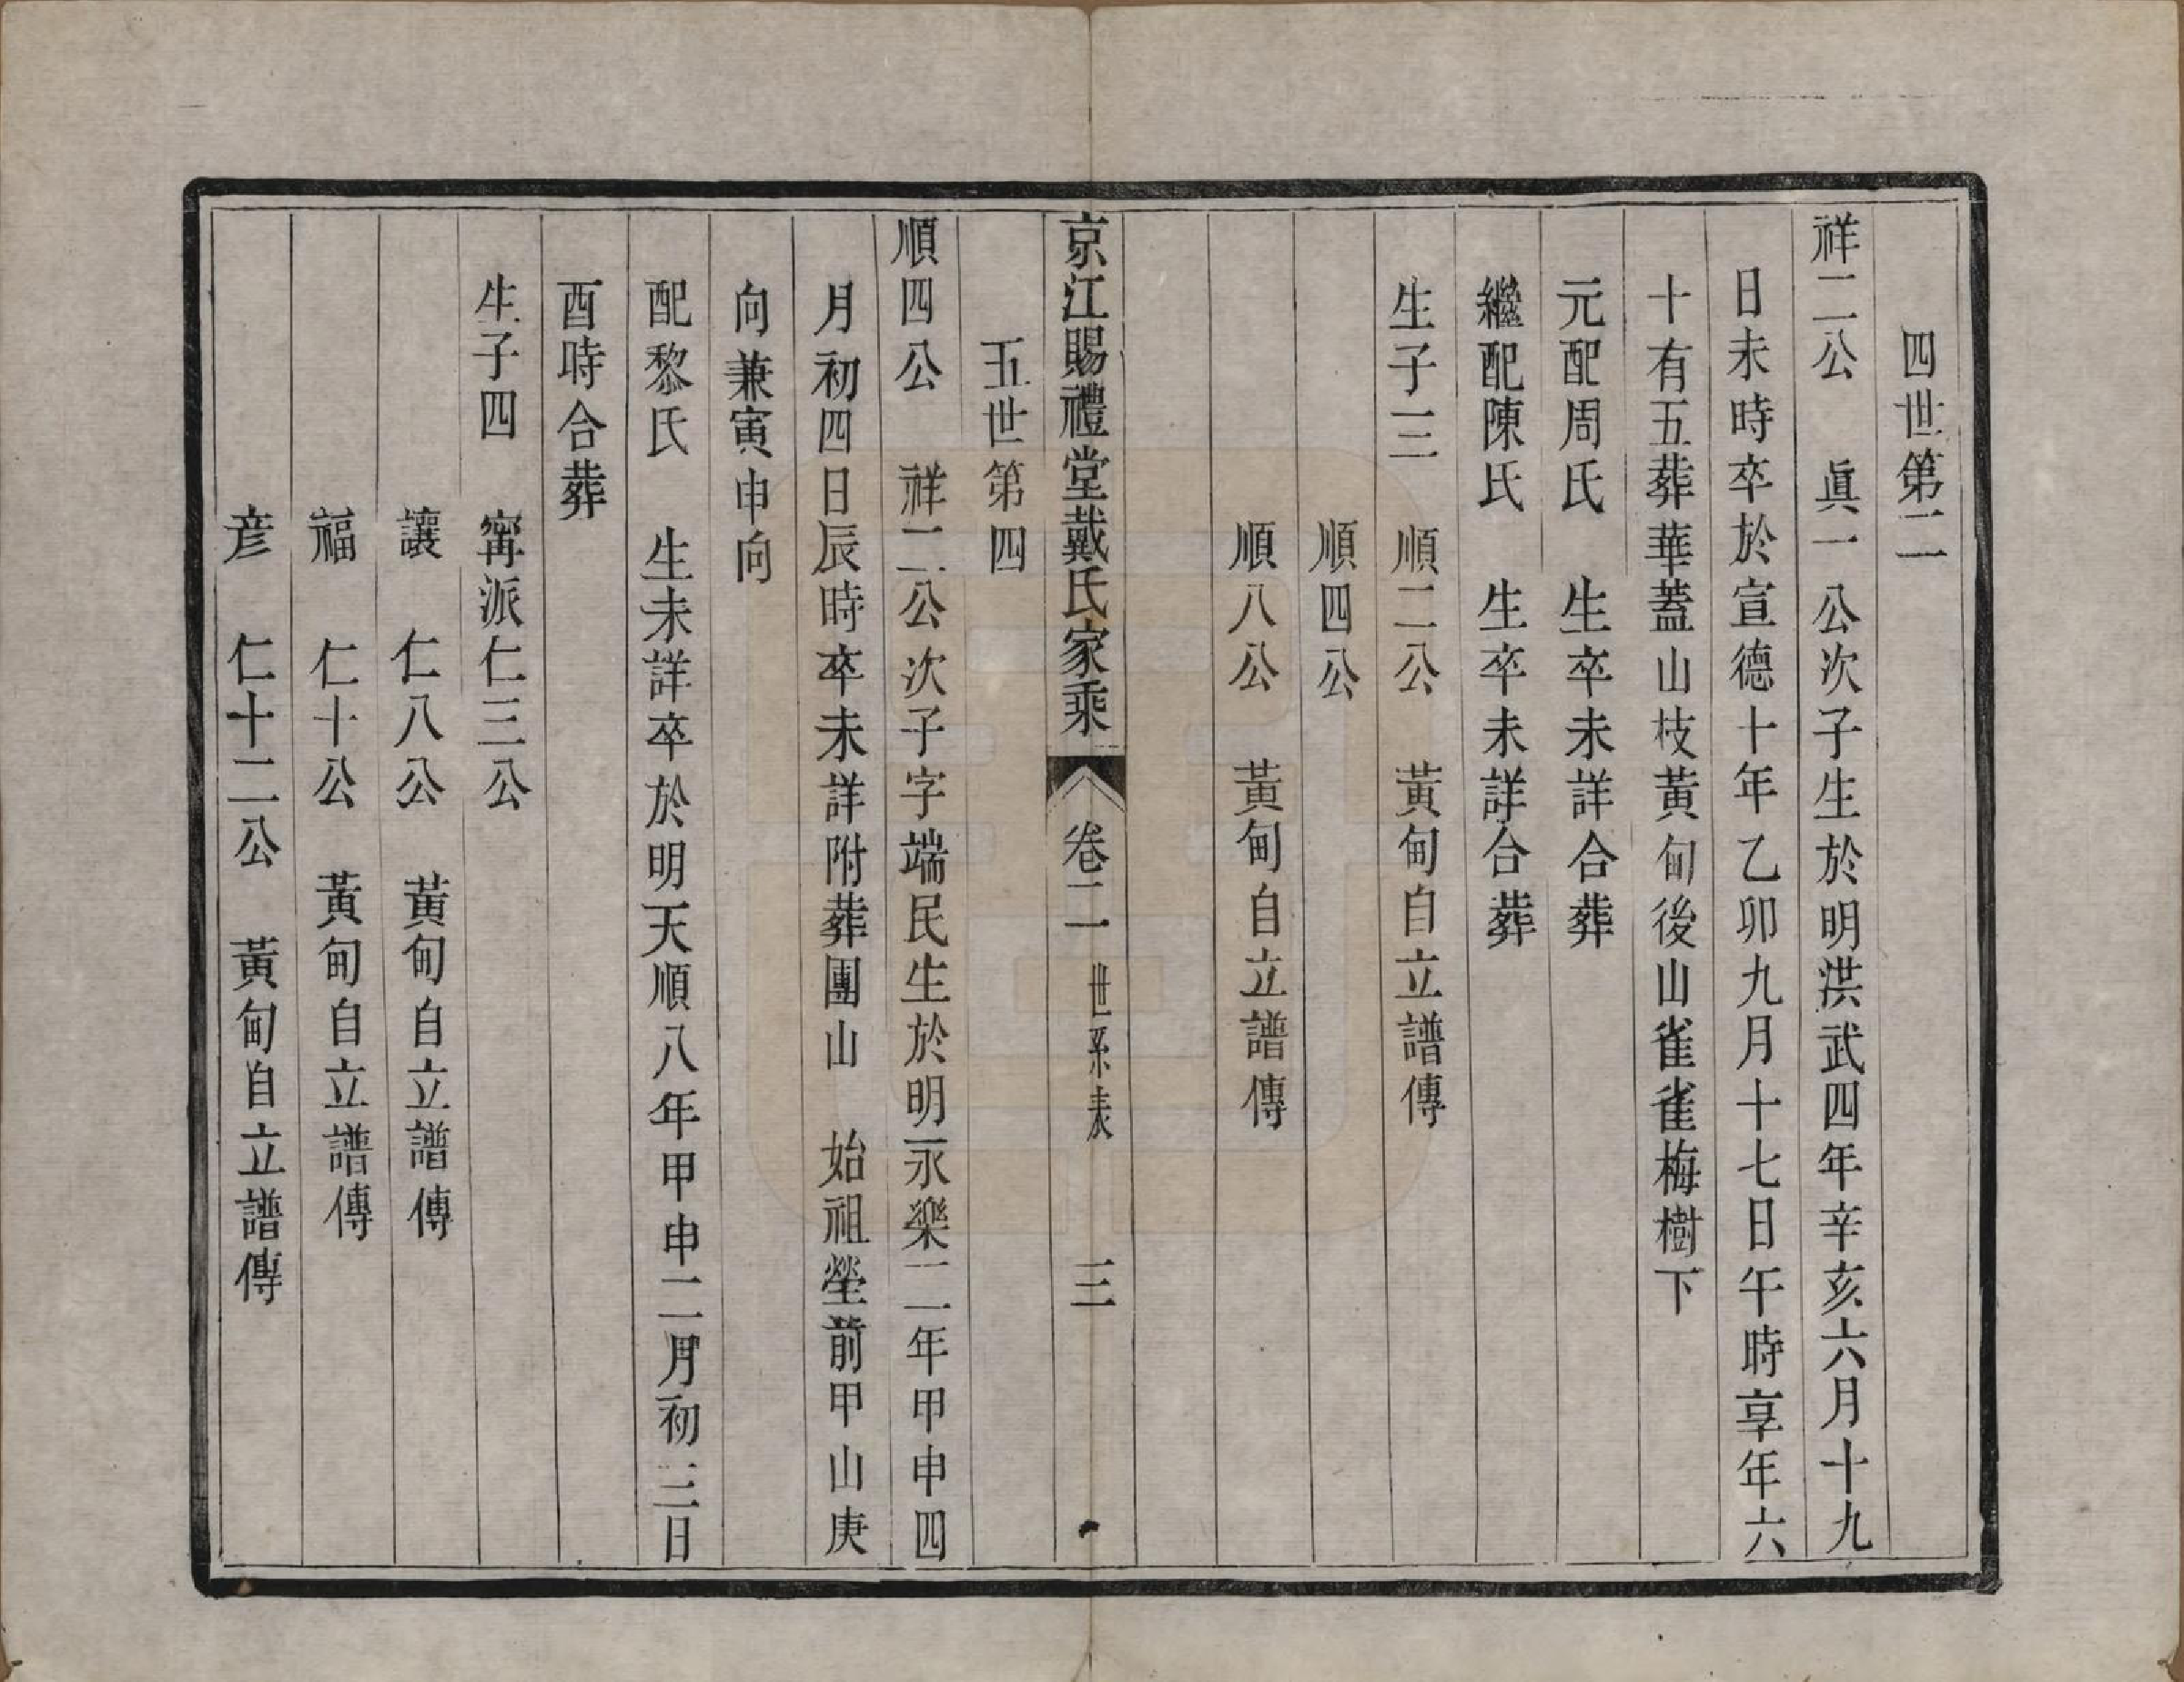 四世第二
祥二公　眞一公次子生於明洪武四年辛亥六月十九
日未時卒於宣德十年乙卯九月十七日午時享年六
十有五葬華蓋山枝黃甸後山雀雀梅樹下
元配周氏　生卒未詳合葬
繼配陳氏　生卒未詳合葬
生子三　順二公　黃甸自立譜傳
順四公
順八公　黃甸自立譜傳
京江賜禮堂戴氏家乘　卷二　世系表　三
五世第四
順四公　祥二公次子字端民生於明永樂二年甲申四
月初四日辰時卒未詳附葬團山　始祖塋前甲山庚
向兼寅申向
配黎氏　生未詳卒於明天順八年甲申二月初三日
酉時合葬
生子四　甯派仁三公
讓　仁八公　黃甸自立譜傳
福　仁十公　黃甸自立譜傳
彥　仁十二公　黃甸自立譜傳